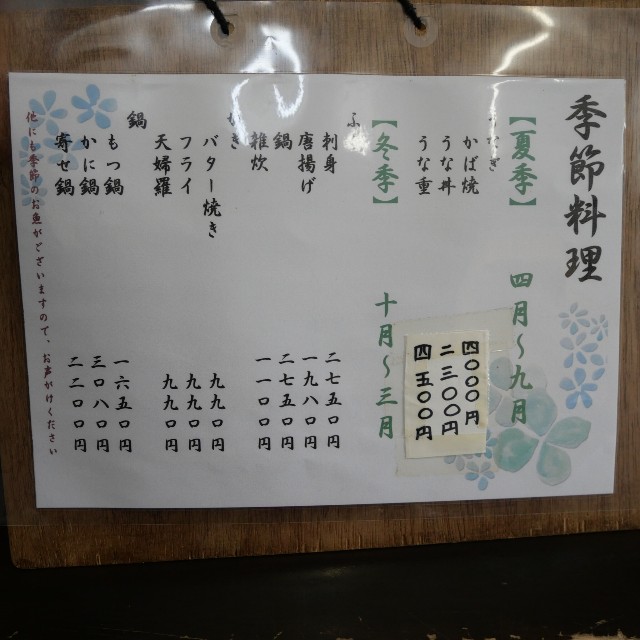 季節料理
【夏季】 四月～九月
うなぎ
かば焼 四〇〇〇円
うな丼 二三〇〇円
うな重 四五〇〇円
【冬季】 十月～三月
ふ
刺身 二七五〇円
唐揚げ 一九八〇円
鍋 二七五〇円
雑炊 一一〇〇円
き
バター焼き 九九〇円
フライ 九九〇円
天婦羅 九九〇円
鍋
もつ鍋 一六五〇円
かに鍋 三〇八〇円
寄せ鍋 二二〇〇円
他にも季節のお魚がございますので、お声がけください